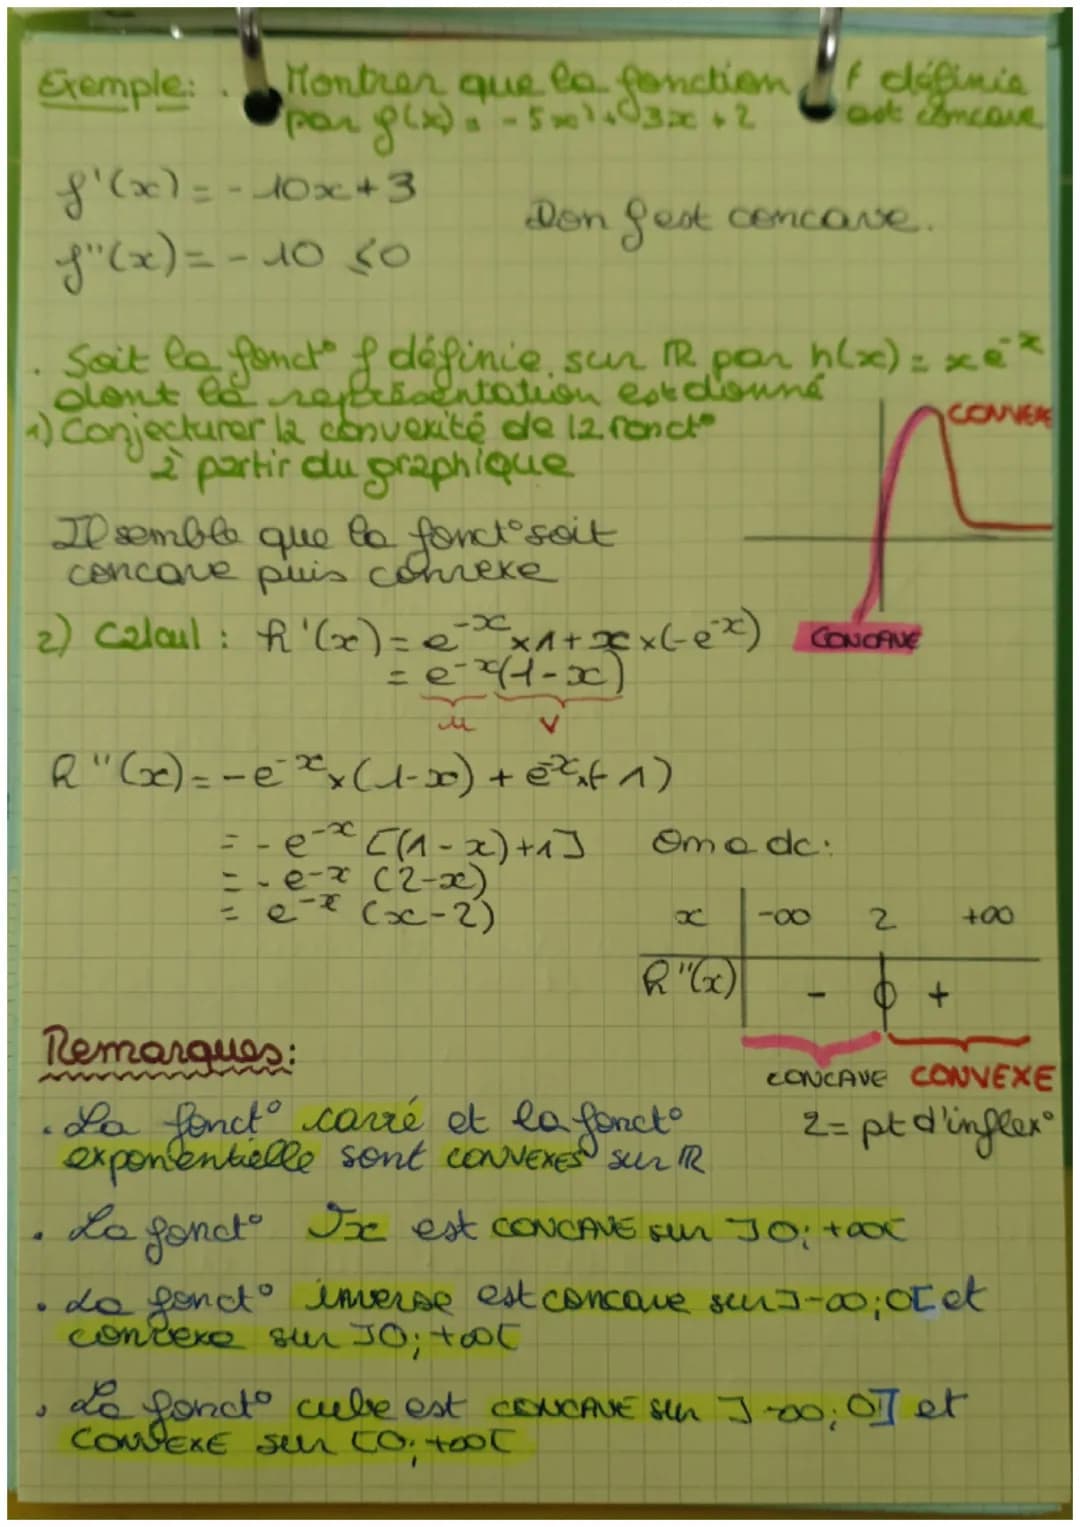 Exemple: . Montrer que la fonction f définie
par f(x) = -5x²+3x+2 est concave
f'(x) = -10x+3
Don f est concave.
f''(x) = -10 ≤0
. Soit la fonct° f définie sur ℝ par h(x) = xe⁻ˣ
dont la représentation est donné
1) Conjecturer la convexité de la fonct°
à partir du graphique
CONVEXE
Il semble que la fonct° soit
concave puis convexe
CONCAVE
2) Calcul : h'(x) = e⁻ˣ×1+x×(-e⁻ˣ)
= e⁻ˣ(1-x)
u v
h''(x) = -e⁻ˣ×(1-x) + e⁻ˣ×(-1)
= -e⁻ˣ [(1-x)+1]
= -e⁻ˣ (2-x)
= e⁻ˣ (x-2)
On a dc:
x -∞ 2 +∞
h''(x) - 0 +
CONCAVE CONVEXE
2= pt d'inflex°
Remarques:
. La fonct° carré et la fonct°
exponentielle sont CONVEXES sur ℝ
. La fonct° √x est CONCAVE sur ]0;+∞[
. La fonct° inverse est concave sur ]-∞;0[ et
convexe sur ]0;+∞[
. La fonct° cube est CONCAVE sur ]-∞;0] et
CONVEXE sur [0;+∞[